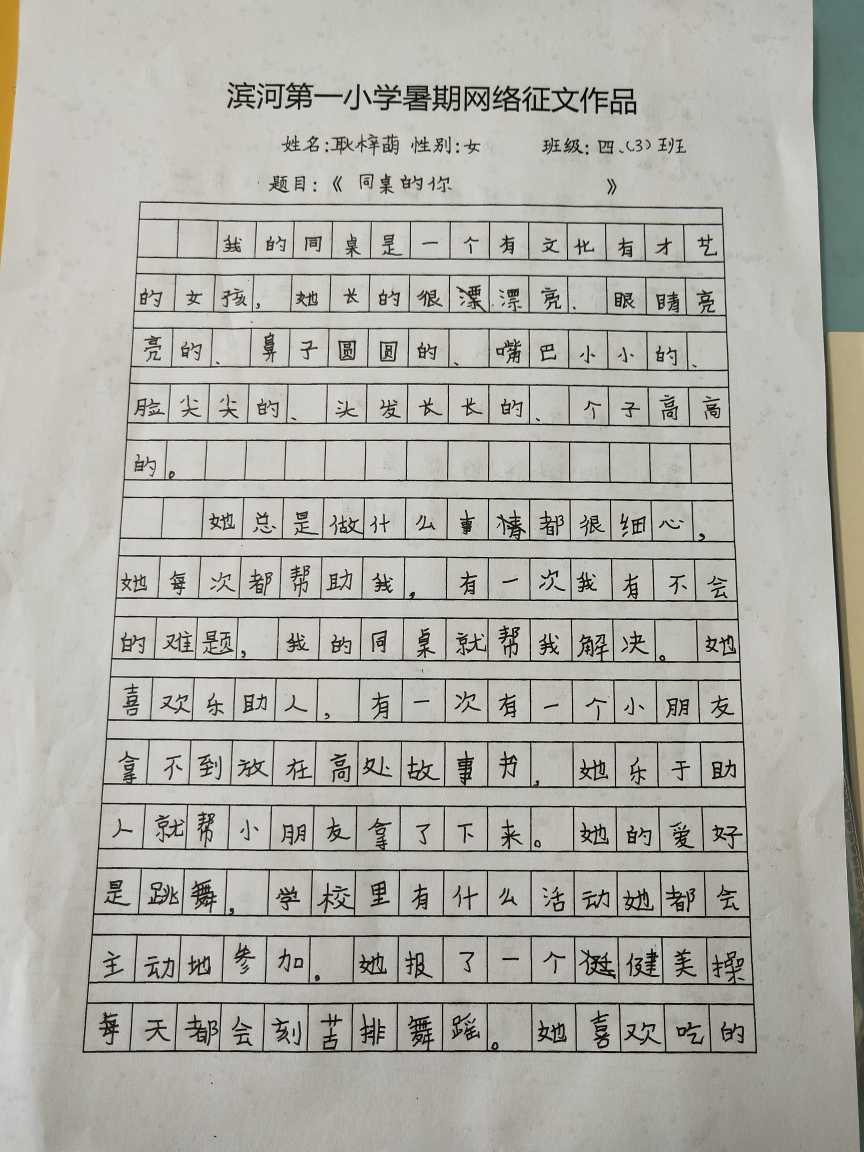 滨河第一小学暑期网络征文作品
姓名:耿梓萌 性别:女 班级:四、(3)班
题目:《 同桌的你 》
我的同桌是一个有文化有才艺
的女孩,她长的很漂漂亮、眼睛亮
亮的、鼻子圆圆的、嘴巴小小的、
脸尖尖的、头发长长的、个子高高
的。
她总是做什么事情都很细心,
她每次都帮助我,有一次我有不会
的难题,我的同桌就帮我解决。她
喜欢乐助人,有一次有一个小朋友
拿不到放在高处故事书,她乐于助
人就帮小朋友拿了下来。她的爱好
是跳舞,学校里有什么活动她都会
主动地参加。她报了一个健美操
每天都会刻苦排舞蹈。她喜欢吃的